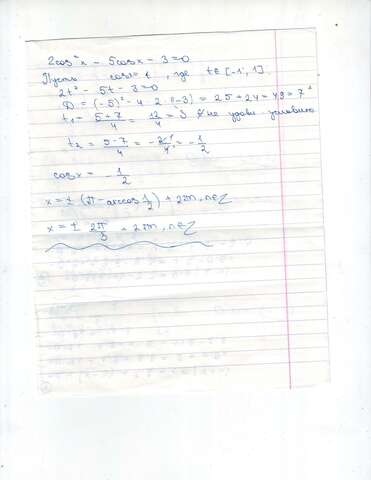 2cos²x - 5cosx - 3 = 0
Пусть cosx = t, где t ∈ [-1; 1]
2t² - 5t - 3 = 0
D = (-5)² - 4·2·(-3) = 25 + 24 = 49 = 7²
t₁ = 5+7/4 = 12/4 = 3 не удовл условию
t₂ = 5-7/4 = -2/4 = -1/2
cosx = -1/2
x = ± (π - arccos 1/2) + 2πn, n∈Z
x = ± 2π/3 + 2πn, n∈Z